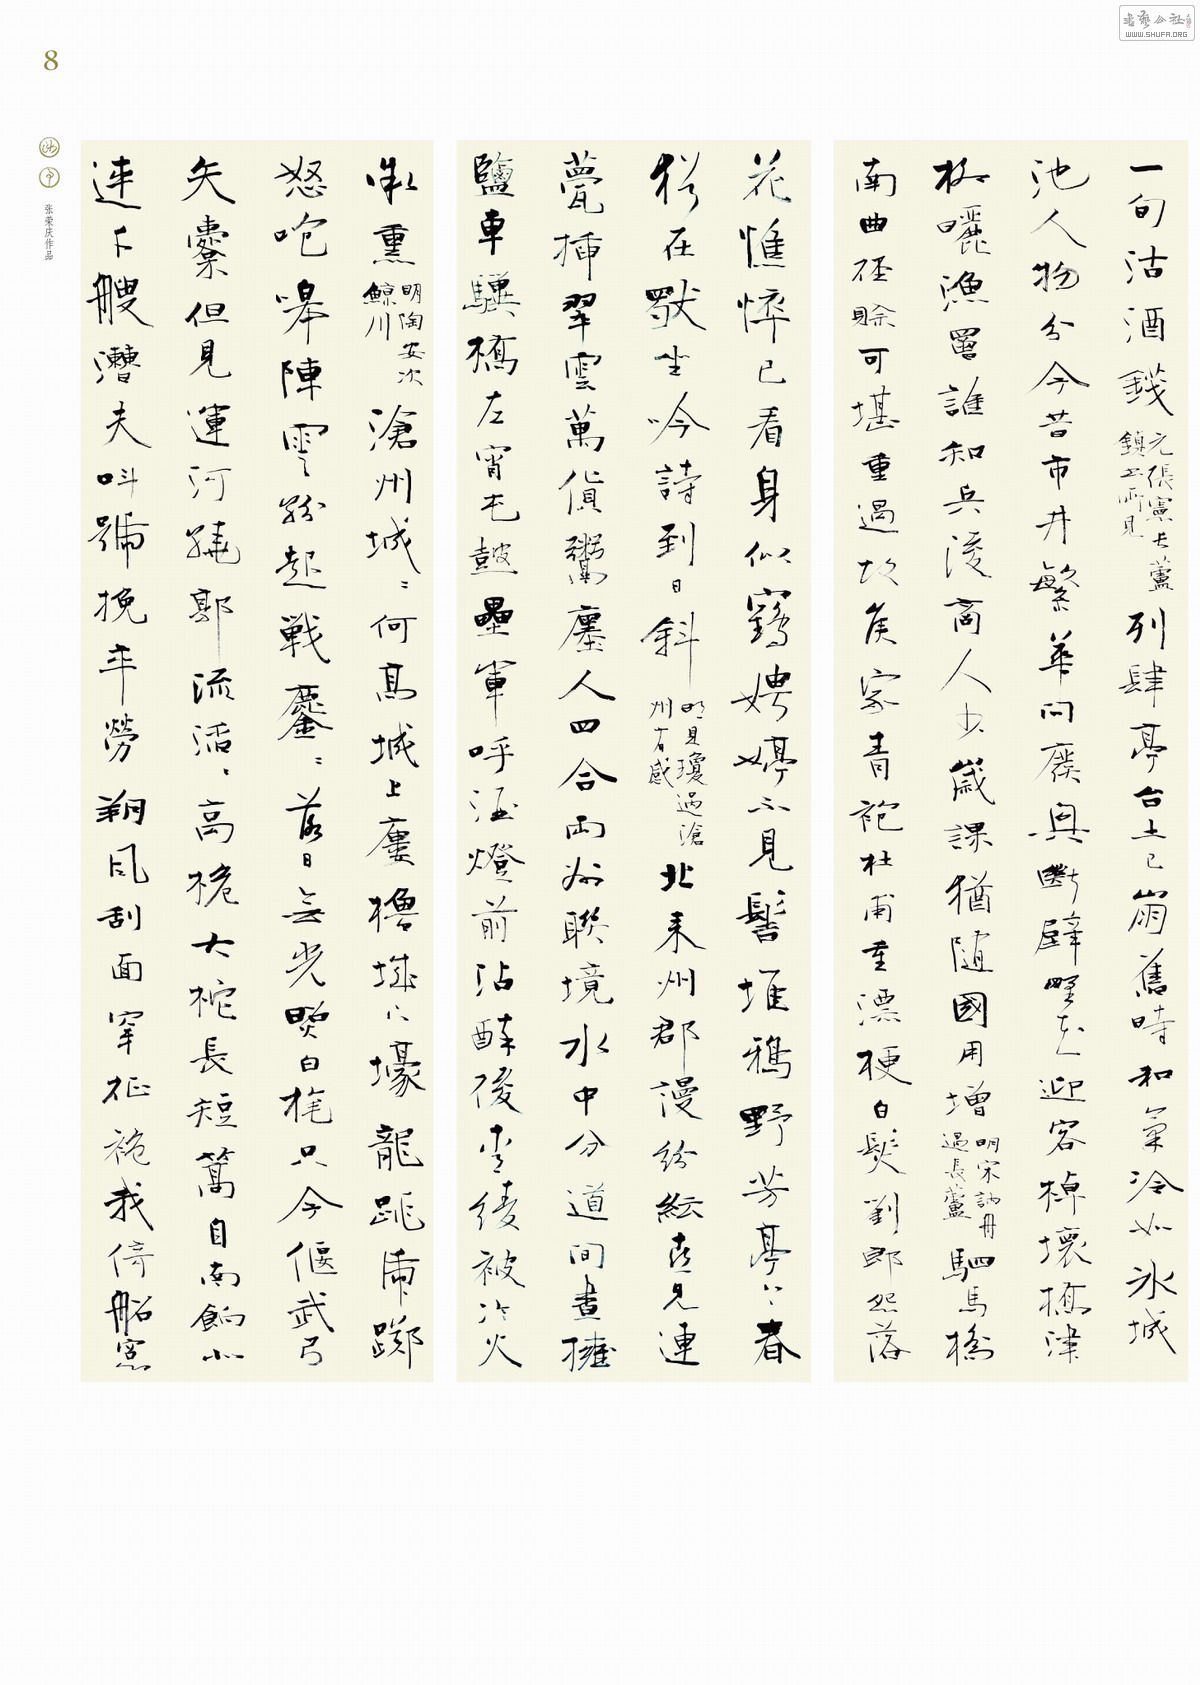 书艺公社
WWW.SHUFA.ORG
8
张荣庆作品
一旬沽酒錢
元張憲長蘆
鎮上所見
列肆亭台土已崩舊時和氣冷如冰城
池人物分今昔市井繁華問廢興斷壁野花迎客棹壞橋津
樹曬漁罾誰知兵後商人少歲課猶隨國用增
明宋訥舟
過長蘆
駟馬橋
南曲徑賒可堪重過故侯家青袍杜甫重漂梗白髮劉郎怨落
花憔悴已看身似鶴娉婷不見髻堆鴉野芳亭〻春
猶在獸坐吟詩到日斜
明貝瓊過滄
州有感
北來州郡漫紛紜喜見連
甍揷翠雲萬貨鬻廛人四合兩州聯境水中分道間晝擁
鹽車驥橋左宵屯鼓壘軍呼酒燈前沾醉後李綾被冷火
微熏
明陶安次
鯨川
滄州城〻何高城上廔櫓城〻壕龍跳虎躑
怒咆嘷陣雲紛起戰鏖〻落日無光照白旄只今偃武弓
矢櫜但見運河繞郭流活〻高桅大柁長短篙自南餉北
連千艘漕夫叫號挽牽勞朔風刮面罕征袍我倚船窗